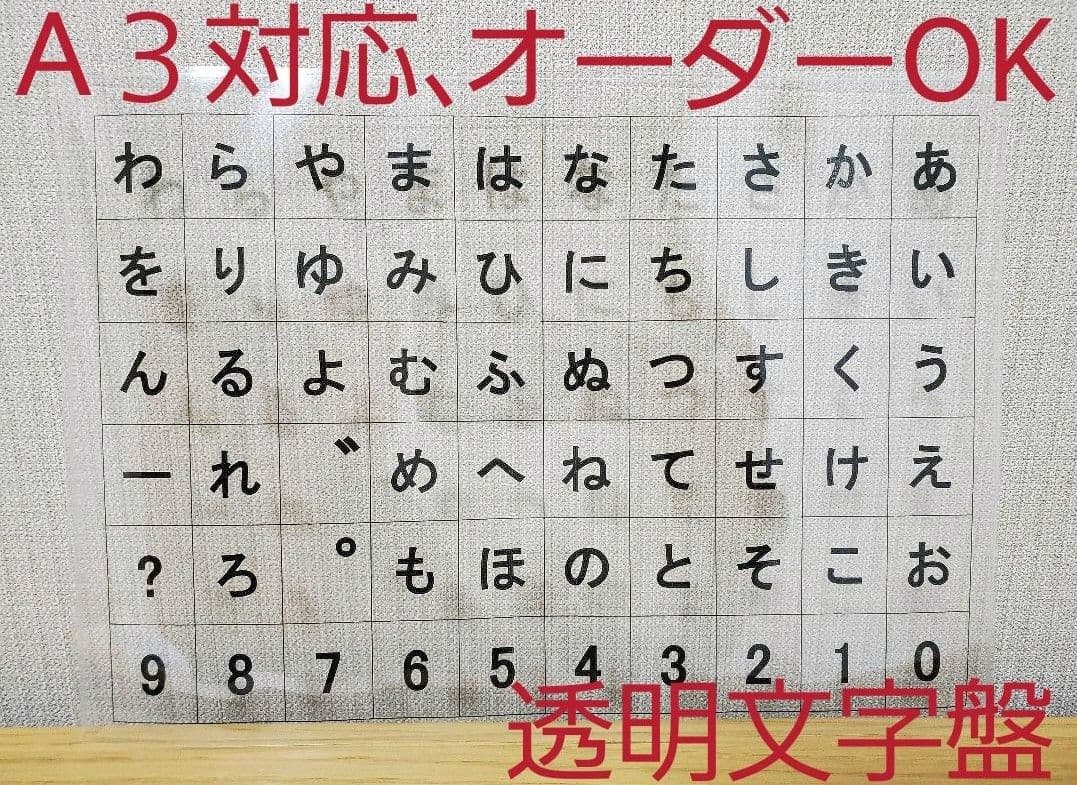 A3対応、オーダーOK
わ ら や ま は な た さ か あ
を り ゆ み ひ に ち し き い
ん る よ む ふ ぬ つ す く う
ー れ ゛ め へ ね て せ け え
? ろ ゜ も ほ の と そ こ お
9 8 7 6 5 4 3 2 1 0
透明文字盤